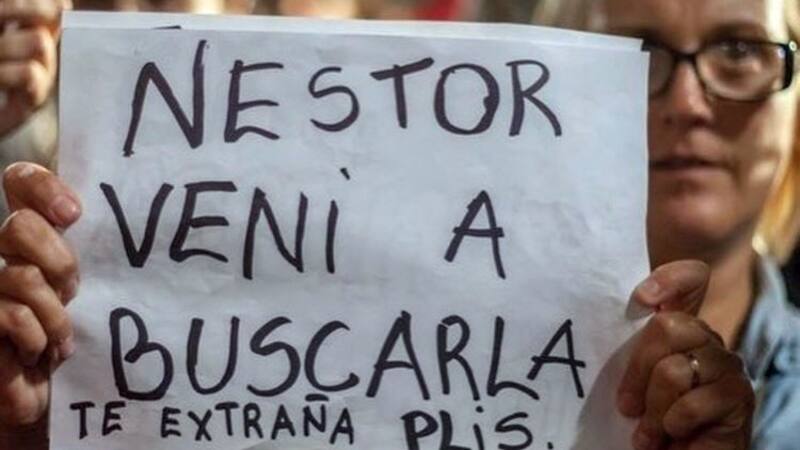 NESTOR
VENÍ A
BUSCARLA
TE EXTRAÑA PLiS.